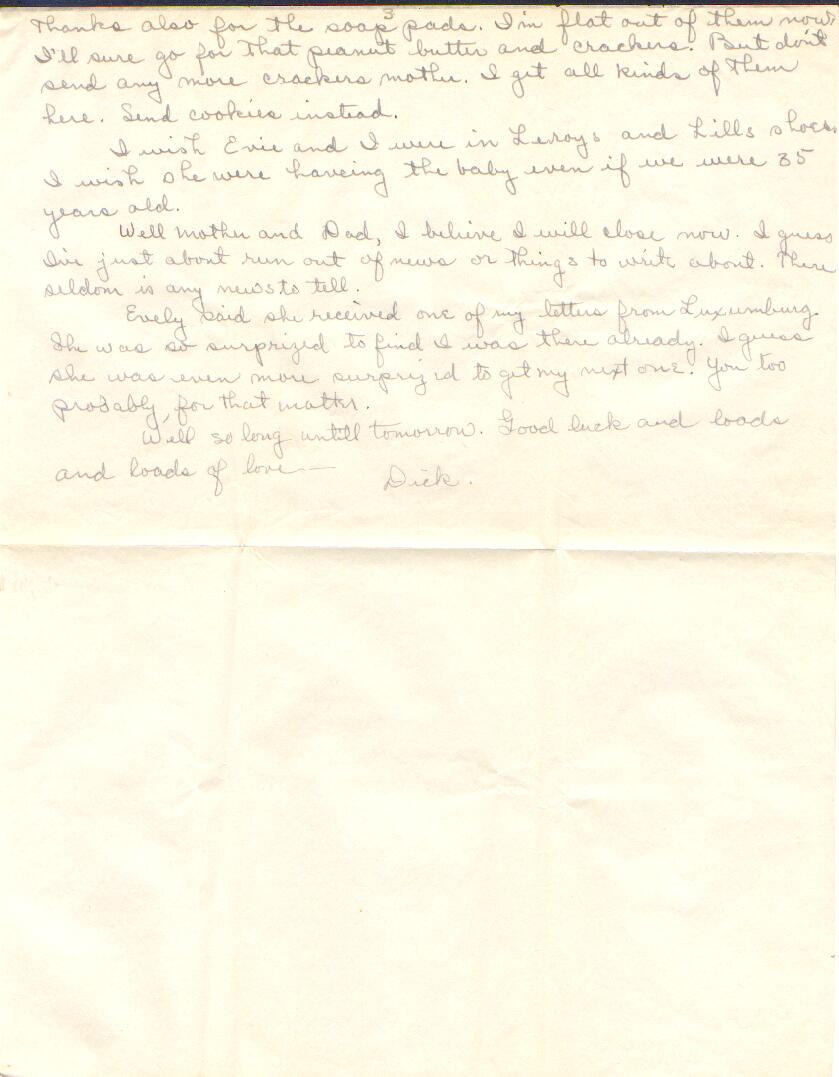 3
Thanks also for the soap pads. I'm flat out of them now.
I'll sure go for that peanut butter and crackers. But don't
send any more crackers mother. I get all kinds of them
here. Send cookies instead.
I wish Evie and I were in Leroys and Lills shoes.
I wish she were haveing the baby even if we were 35
years old.
Well Mother and Dad, I believe I will close now. I guess
I've just about run out of news or things to write about. There
seldom is any news to tell.
Evely said she received one of my letters from Luxumburg.
She was so surprized to find I was there already. I guess
she was even more surprized to get my next one. You too
probably, for that matter.
Well so long untill tomorrow. Good luck and loads
and loads of love—
Dick.